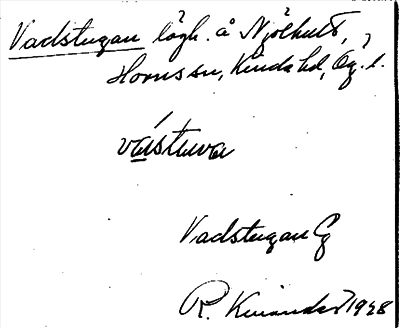 Vadstugan lägh. å Njölhult,
Horns sn, Kinda hd, Ög. l.
vástuva
Vadstugan Eg
R. Kinander 1928